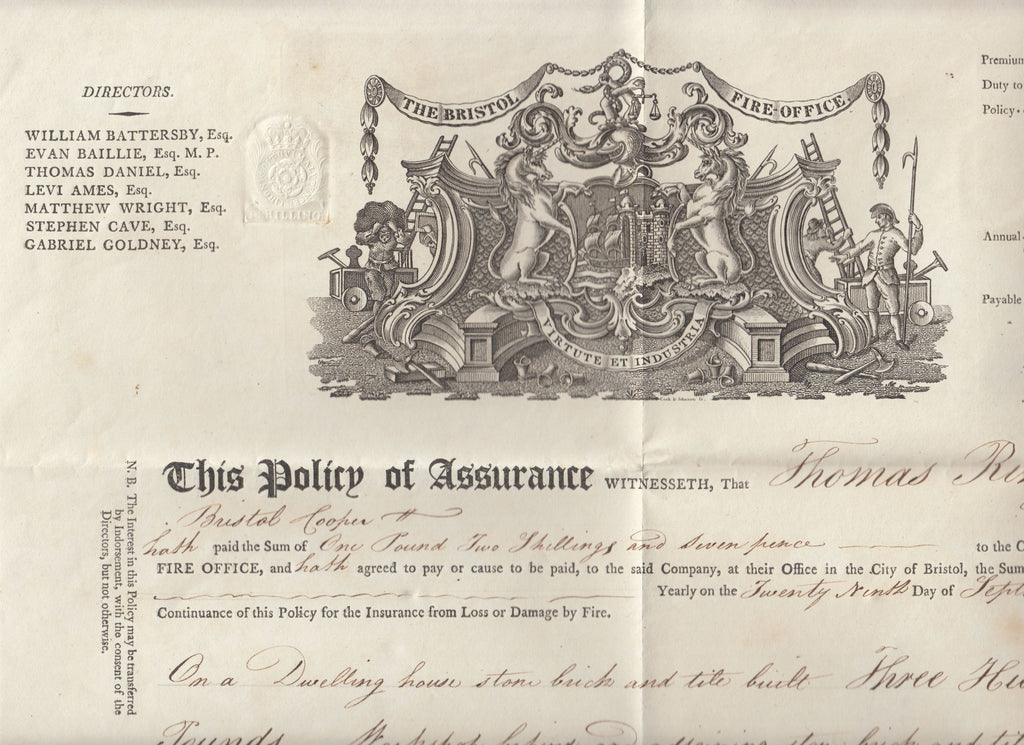 DIRECTORS.
WILLIAM BATTERSBY, Esq.
EVAN BAILLIE, Esq. M. P.
THOMAS DANIEL, Esq.
LEVI AMES, Esq.
MATTHEW WRIGHT, Esq.
STEPHEN CAVE, Esq.
GABRIEL GOLDNEY, Esq.
THE BRISTOL FIRE-OFFICE
VIRTUTE ET INDUSTRIA
Premium
Duty to
Policy
Annual
Payable
This Policy of Assurance WITNESSETH, That Thomas
Bristol Cooper
hath paid the Sum of One Pound Two Shillings and Seven pence to the C
FIRE OFFICE, and hath agreed to pay or cause to be paid, to the said Company, at their Office in the City of Bristol, the Sum
Yearly on the Twenty Ninth Day of Sept
Continuance of this Policy for the Insurance from Loss or Damage by Fire.
On a Dwelling house stone brick and tile built Three Hu
Pounds
N. B. The Interest in this Policy may be transferred
by Indorsement, with the consent of the
Directors, but not otherwise.